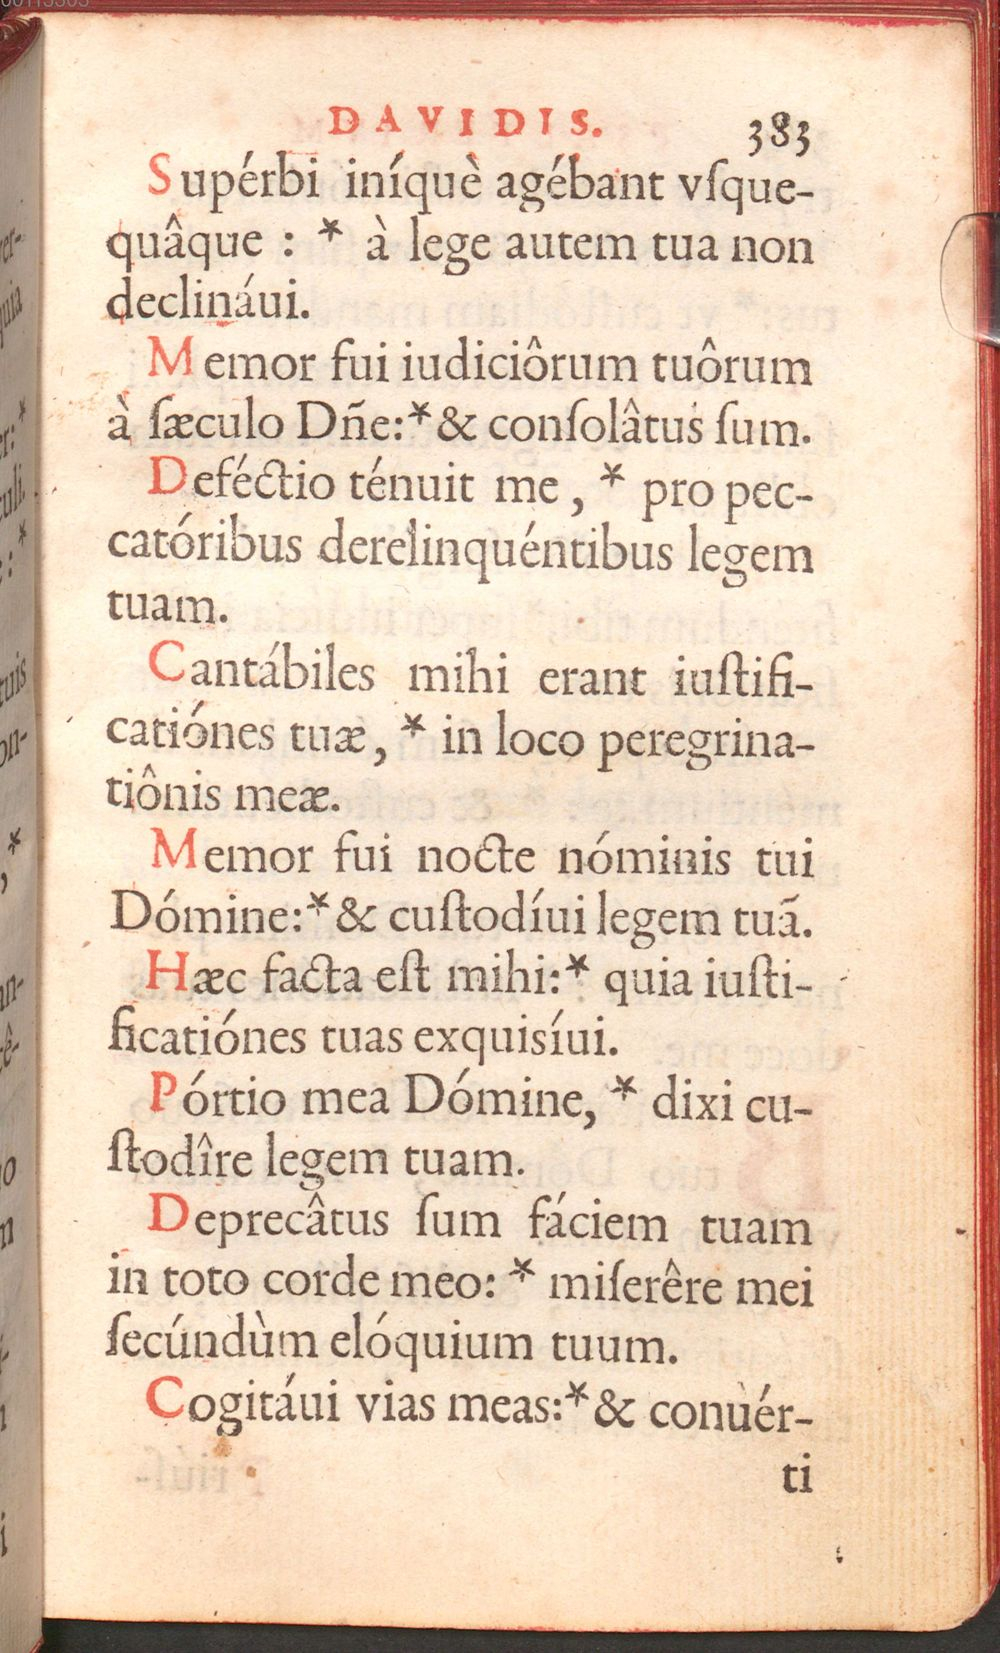 DAVIDIS. 383
Supérbi iníquè agébant vſque-
quâque : * à lege autem tua non
declináui.
Memor fui iudiciôrum tuôrum
à ſæculo Dñe:* & conſolâtus ſum.
Deféctio ténuit me , * pro pec-
catóribus derelinquéntibus legem
tuam.
Cantábiles mihi erant iuſtifi-
catiónes tuæ, * in loco peregrina-
tiônis meæ.
Memor fui nocte nóminis tui
Dómine:* & cuſtodíui legem tuã.
Hæc facta eſt mihi:* quia iuſti-
ficatiónes tuas exquisíui.
Pórtio mea Dómine, * dixi cu-
ſtodîre legem tuam.
Deprecâtus ſum fáciem tuam
in toto corde meo: * miſerêre mei
ſecúndùm elóquium tuum.
Cogitáui vias meas:* & conuér-
ti